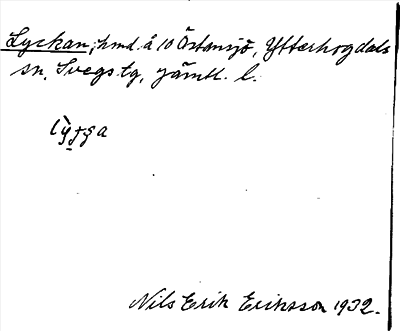 Lyckan, hmd. å 10 Östansjö, Ytterhogdals
sn. Svegs tg, Jämtl. l.
Nils Erik Eriksson 1932.